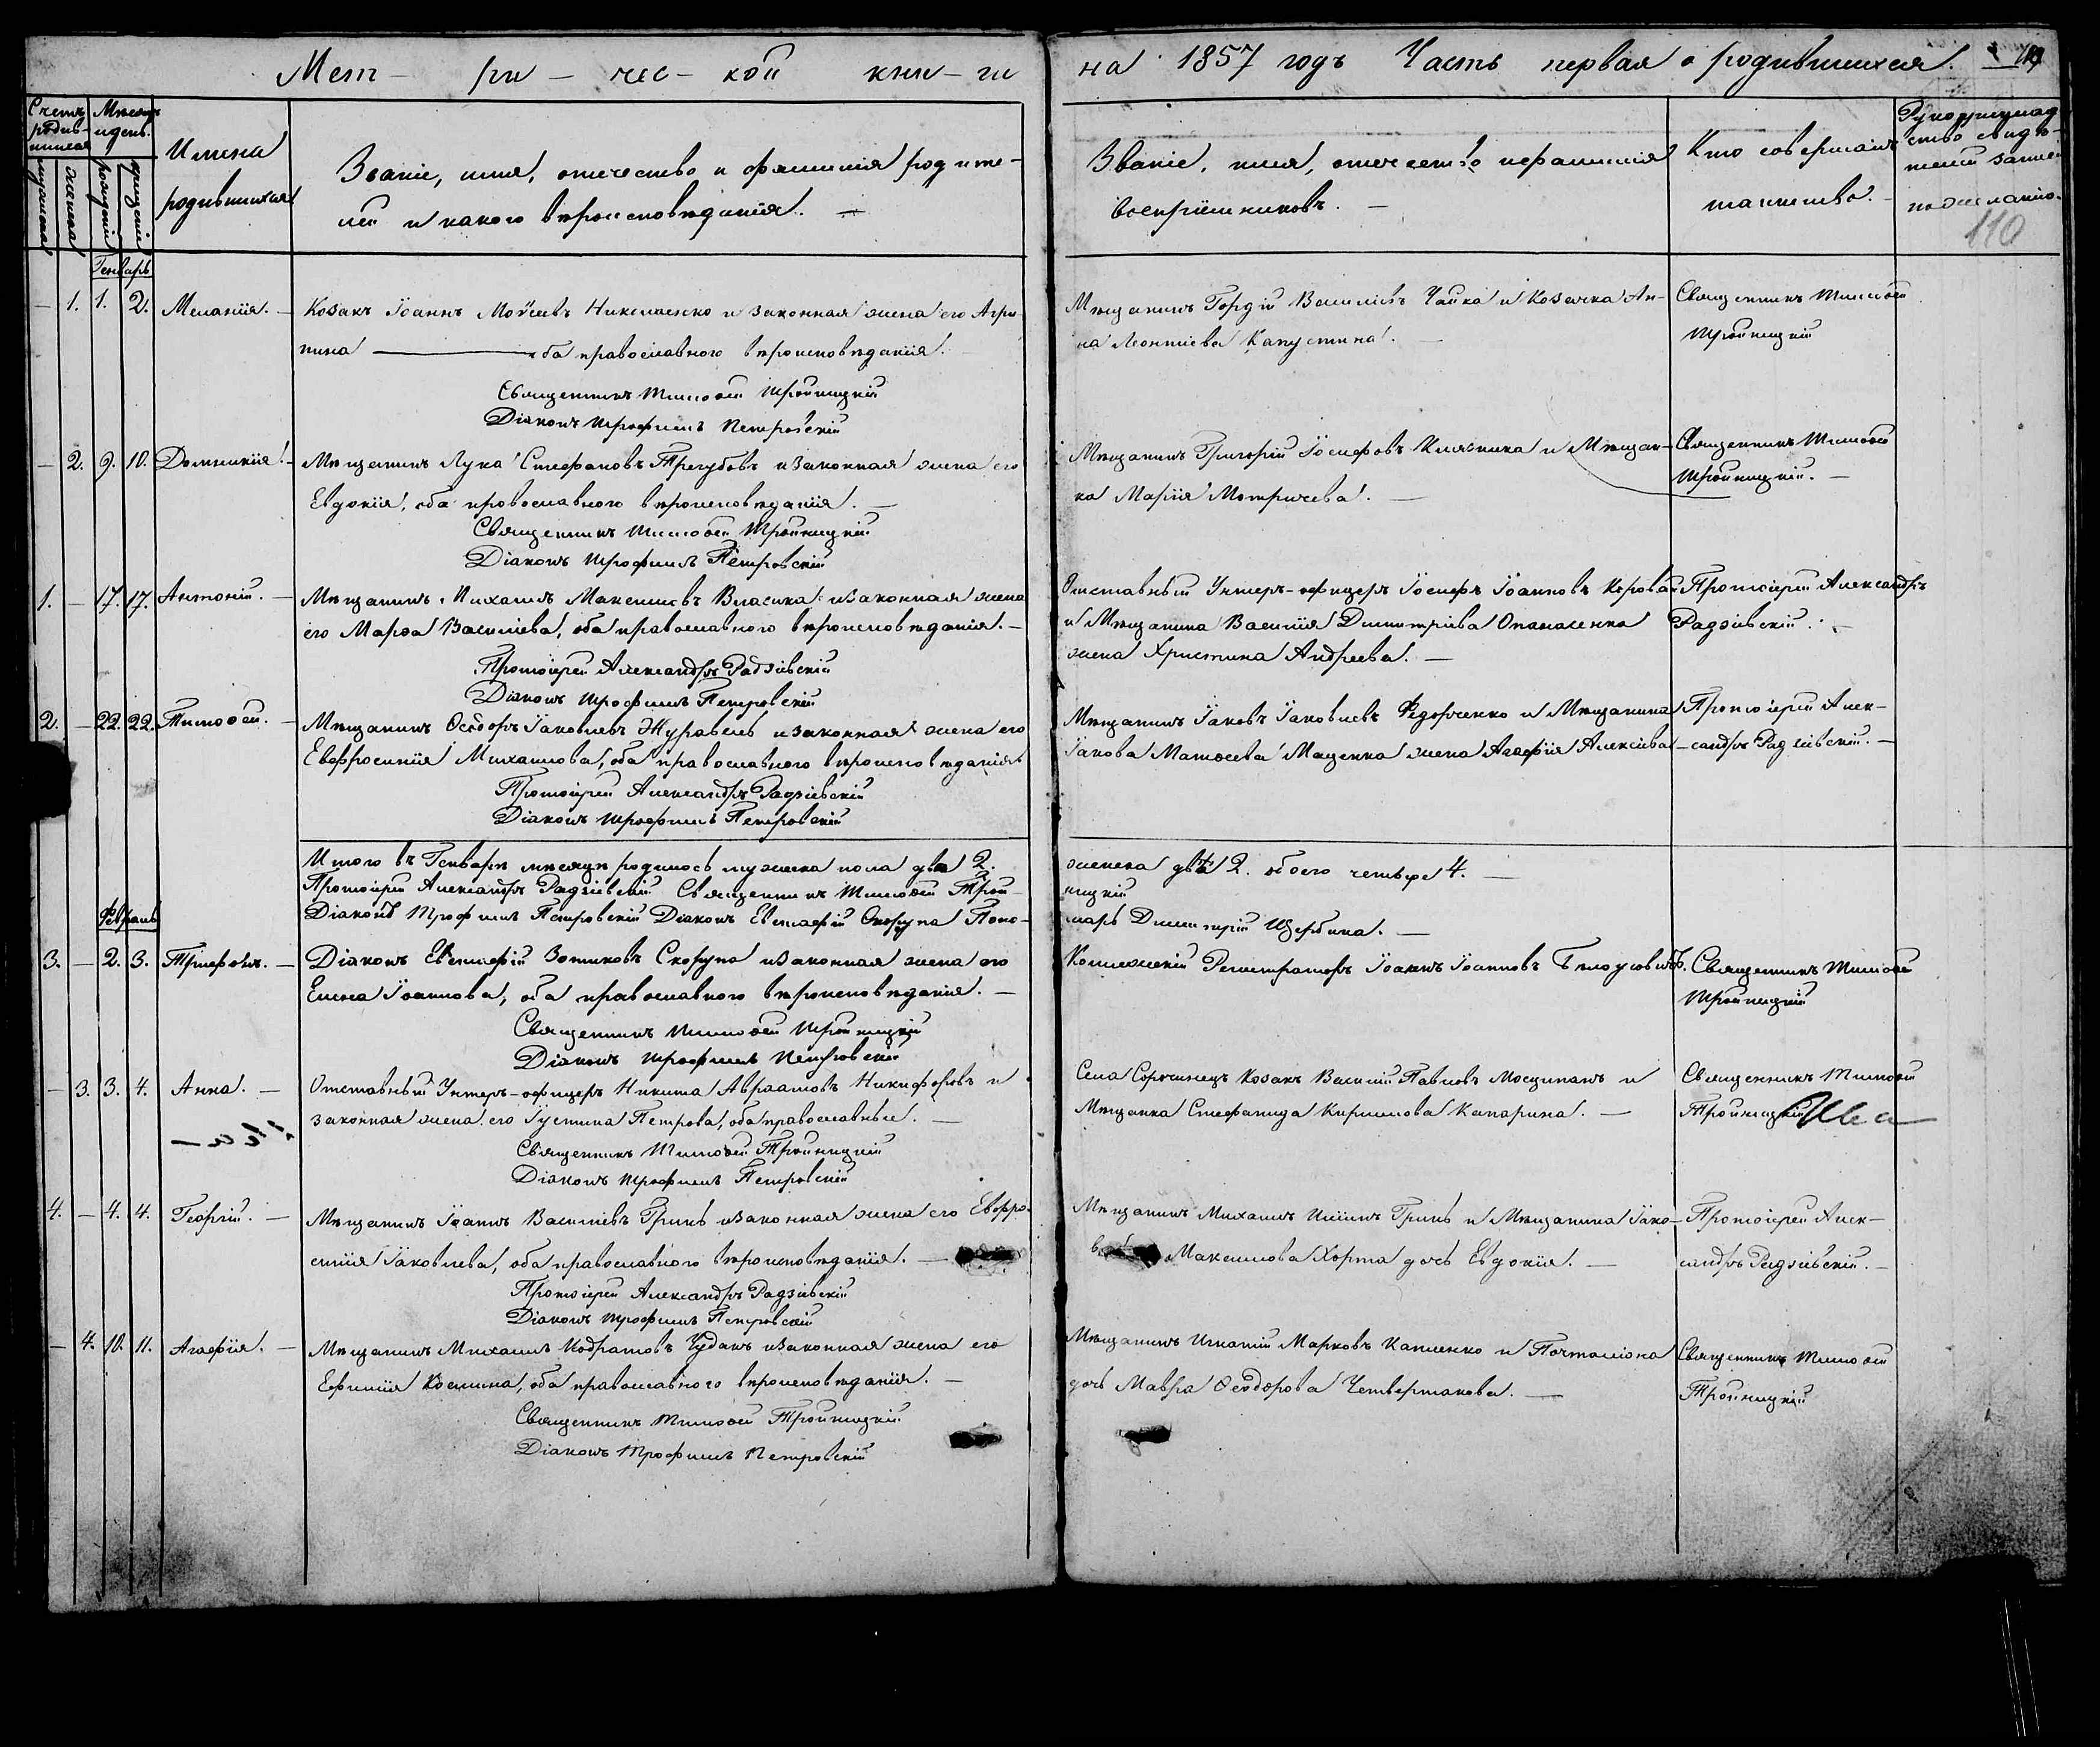 Мет- ри- чес- кой кни- ги
на 1857 годъ Часть первая о родившихся.
110
Счетъ родив-шихся
Мѣсяцъ и день.
мужеска
женска
рожденія
крещенія
Имена
родившихся
Званіе, имя, отечество и фамилія родите-
лей и какого вѣроисповѣданія. —
Званіе, имя, отечество и фамилія
воспріемниковъ. —
Кто совершалъ
таинство. —
Рукоприклад-
ство свидѣ-
телей записи
по желанію.
Генварь
— 1. 1. 2. Меланія. —
Козакъ Іоаннъ Моѵсеевъ Николаенко и законная жена его Агри-
пина — оба православного вѣроисповѣданія.
Священникъ Тимоѳей Тройницкій
Діаконъ Трофимъ Петровскій
Мѣщанинъ Гордій Василіевъ Чайка и Козачка Ан-
на Леонтіева Капустина. —
Священникъ Тимоѳей
Тройницкій
— 2. 9. 10. Домникія. —
Мѣщанинъ Лука Стефановъ Трегубовъ и законная жена его
Евдокія, оба православного вѣроисповѣданія. —
Священникъ Тимоѳей Тройницкій
Діаконъ Трофимъ Петровскій
Мѣщанинъ Григорій Іосифовъ и Мѣщан-
ка Марія Мотричева. —
Священникъ Тимоѳей
Тройницкій. —
1. — 17. 17. Антоній. —
Мѣщанинъ Михаилъ Максимовъ Власика и законная жена
его Марѳа Василіева, оба православного вѣроисповѣданія. —
Протоіерей Александръ Радзіевскій
Діаконъ Трофимъ Петровскій
Отставный Унтеръ-офицеръ Іосифъ Іоанновъ
и Мѣщанина Василія Димитріева Опанасенка
жена Христина Андреева. —
Протоіерей Александръ
Радзіевскій. —
2. — 22. 22. Тимоѳей. —
Мѣщанинъ Ѳеодоръ Іаковлевъ Журавель и законная жена его
Евфросинія Михаилова, оба православного вѣроисповѣданія
Протоіерей Александръ Радзіевскій
Діаконъ Трофимъ Петровскій
Мѣщанинъ Іаковъ Іаковлевъ Федорченко и Мѣщанина
Іакова Матѳеева Маценка жена Агафія Алексіева
Протоіерей Алек-
сандръ Радзіевскій. —
Итого въ Генварѣ мѣсяцѣ родилось мужеска пола два 2.
женска двѣ 2. обоего четыре 4. —
Протоіерей Александръ Радзіевскій Священникъ Тимоѳей Трой-
ницкій
Діаконъ Трофимъ Петровскій Діаконъ Евстафій Скорупа Поно-
марь Димитрій Щербина. —
Февраль
3. — 2. 3. Трифонъ. —
Діаконъ Евстафій Зотиковъ Скорупа и законная жена его
Елена Іоаннова, оба православного вѣроисповѣданія. —
Священникъ Тимоѳей Тройницкій
Діаконъ Трофимъ Петровскій
Коллежскій Регистраторъ Іоаннъ Іоанновъ Бѣлоусовичъ.
Священникъ Тимоѳей
Тройницкій
— 3. 3. 4. Анна. —
Отставный Унтеръ-офицеръ Никита Авраамовъ Никифоровъ и
законная жена его Іустина Петрова, оба православные. —
Священникъ Тимоѳей Тройницкій
Діаконъ Трофимъ Петровскій
Села Сорочинецъ Козакъ Василій Павловъ и
Мѣщанка Стефанида Кирилова Капарина. —
Священникъ Тимоѳей
Тройницкій
4. — 4. 4. Георгій. —
Мѣщанинъ Іоаннъ Василіевъ Гринь и законная жена его Евфро-
синія Іаковлева, оба православного вѣроисповѣданія. —
Протоіерей Александръ Радзіевскій
Діаконъ Трофимъ Петровскій
Мѣщанинъ Михаилъ Гринь и Мѣщанина Іако-
ва Максимова Хорта дочь Евдокія. —
Протоіерей Алек-
сандръ Радзіевскій. —
— 4. 10. 11. Агафія. —
Мѣщанинъ Михаилъ Кодратовъ Чуданъ и законная жена его
Ефимія Косьмина, оба православного вѣроисповѣданія. —
Священникъ Тимоѳей Тройницкій
Діаконъ Трофимъ Петровскій
Мѣщанинъ Игнатій Марковъ Капленко и Почталіона
дочь Мавра Ѳеодорова Четвертакова. —
Священникъ Тимоѳей
Тройницкій